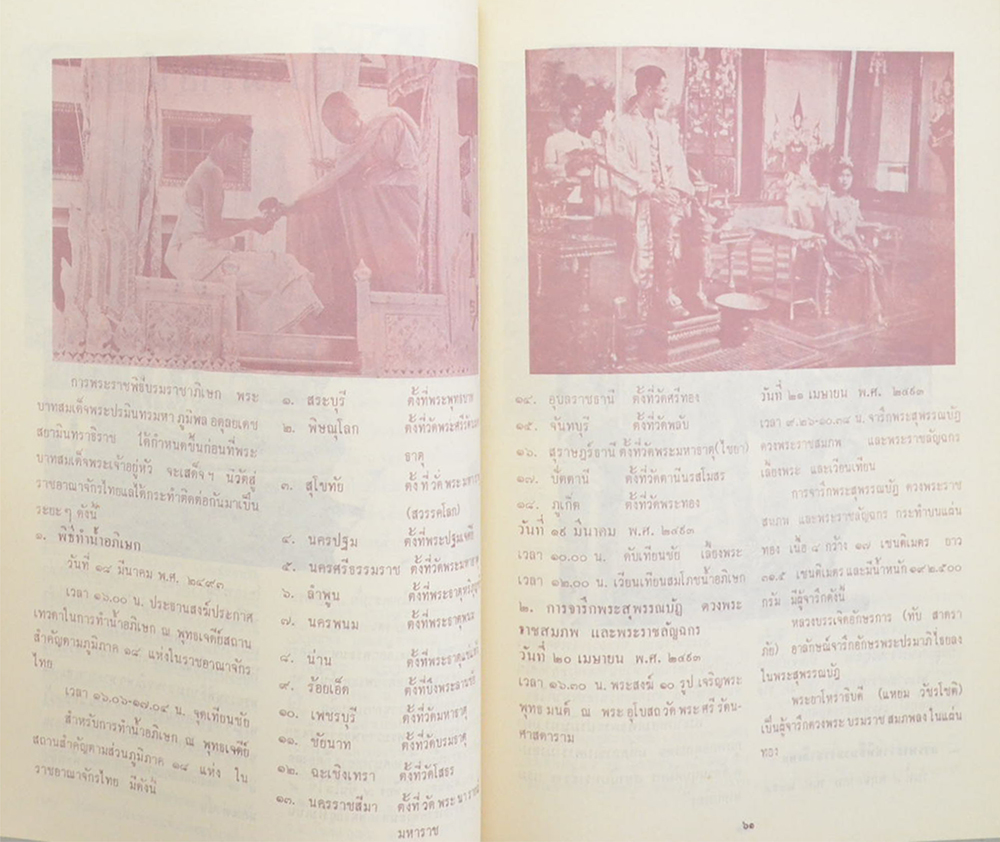 การพระราชพิธีบรมราชาภิเษก พระ
บาทสมเด็จพระปรมินทรมหาภูมิพลอดุลยเดช
สยามินทราธิราช ได้กำหนดขึ้นก่อนที่พระ
บาทสมเด็จพระเจ้าอยู่หัว จะเสด็จฯ นิวัตสู่
ราชอาณาจักรไทยและได้กระทำติดต่อกันมาเป็น
ระยะๆ ดังนี้
๑. พิธีทำน้ำอภิเษก
วันที่ ๑๘ มีนาคม พ.ศ. ๒๔๙๓
เวลา ๑๖.๐๐ น. ประธานสงฆ์ประกาศ
เทวดาในการทำน้ำอภิเษก ณ พุทธเจดีย์สถาน
สำคัญตามภูมิภาค ๑๘ แห่งในราชอาณาจักร
ไทย
เวลา ๑๖.๐๖-๑๗.๐๔ น. จุดเทียนชัย
สำหรับการทำน้ำอภิเษก ณ พุทธเจดีย์
สถานสำคัญตามส่วนภูมิภาค ๑๘ แห่ง ใน
ราชอาณาจักรไทย มีดังนี้
๑. สระบุรี ตั้งที่พระพุทธบาท
๒. พิษณุโลก ตั้งที่วัดพระศรีรัตนมหา
ธาตุ
๓. สุโขทัย ตั้งที่วัดพระมหาธาตุ
(สวรรคโลก)
๔. นครปฐม ตั้งที่พระปฐมเจดีย์
๕. นครศรีธรรมราช ตั้งที่วัดพระมหาธาตุ
๖. ลำพูน ตั้งที่พระธาตุหริภุญชัย
๗. นครพนม ตั้งที่พระธาตุพนม
๘. น่าน ตั้งที่พระธาตุแช่แห้ง
๙. ร้อยเอ็ด ตั้งที่บึงพระลานชัย
๑๐. เพชรบุรี ตั้งที่วัดมหาธาตุ
๑๑. ชัยนาท ตั้งที่วัดบรมธาตุ
๑๒. ฉะเชิงเทรา ตั้งที่วัดโสธร
๑๓. นครราชสีมา ตั้งที่วัดพระนารายณ์
มหาราช
๑๔. อุบลราชธานี ตั้งที่วัดศรีทอง
๑๕. จันทบุรี ตั้งที่วัดพลับ
๑๖. สุราษฎร์ธานี ตั้งที่วัดพระมหาธาตุ(ไชยา)
๑๗. ปัตตานี ตั้งที่วัดตานีนรสโมสร
๑๘. ภูเก็ต ตั้งที่วัดพระทอง
วันที่ ๑๙ มีนาคม พ.ศ. ๒๔๙๓
เวลา ๑๐.๐๐ น. ดับเทียนชัย เลี้ยงพระ
เวลา ๑๒.๐๐ น. เวียนเทียนสมโภชน้ำอภิเษก
๒. การจารึกพระสุพรรณบัฏ ดวงพระ
ราชสมภพ และพระราชลัญฉกร
วันที่ ๒๐ เมษายน พ.ศ. ๒๔๙๓
เวลา ๑๖.๓๐ น. พระสงฆ์ ๑๐ รูป เจริญพระ
พุทธมนต์ ณ พระอุโบสถวัดพระศรีรัตน-
ศาสดาราม
วันที่ ๒๑ เมษายน พ.ศ. ๒๔๙๓
เวลา ๙.๒๖-๑๐.๓๔ น. จารึกพระสุพรรณบัฏ
ดวงพระราชสมภพ และพระราชลัญฉกร
เลี้ยงพระ และเวียนเทียน
การจารึกพระสุพรรณบัฏ ดวงพระราช
สมภพ และพระราชลัญฉกร กระทำบนแผ่น
ทอง เนื้อ ๘ กว้าง ๑๗ เซนติเมตร ยาว
๓๑.๕ เซนติเมตร และมีน้ำหนัก ๑๙๒.๕๐๐
กรัม มีผู้จารึกดังนี้
หลวงบรรเจิดอักษรการ (ทับ สาตรา
ภัย) อาลักษณ์จารึกอักษรพระปรมาภิไธยลง
ในพระสุพรรณบัฏ
พระยาโหราธิบดี (แหยม วัชรโชติ)
เป็นผู้จารึกดวงพระบรมราชสมภพลงในแผ่น
ทอง
๖๑